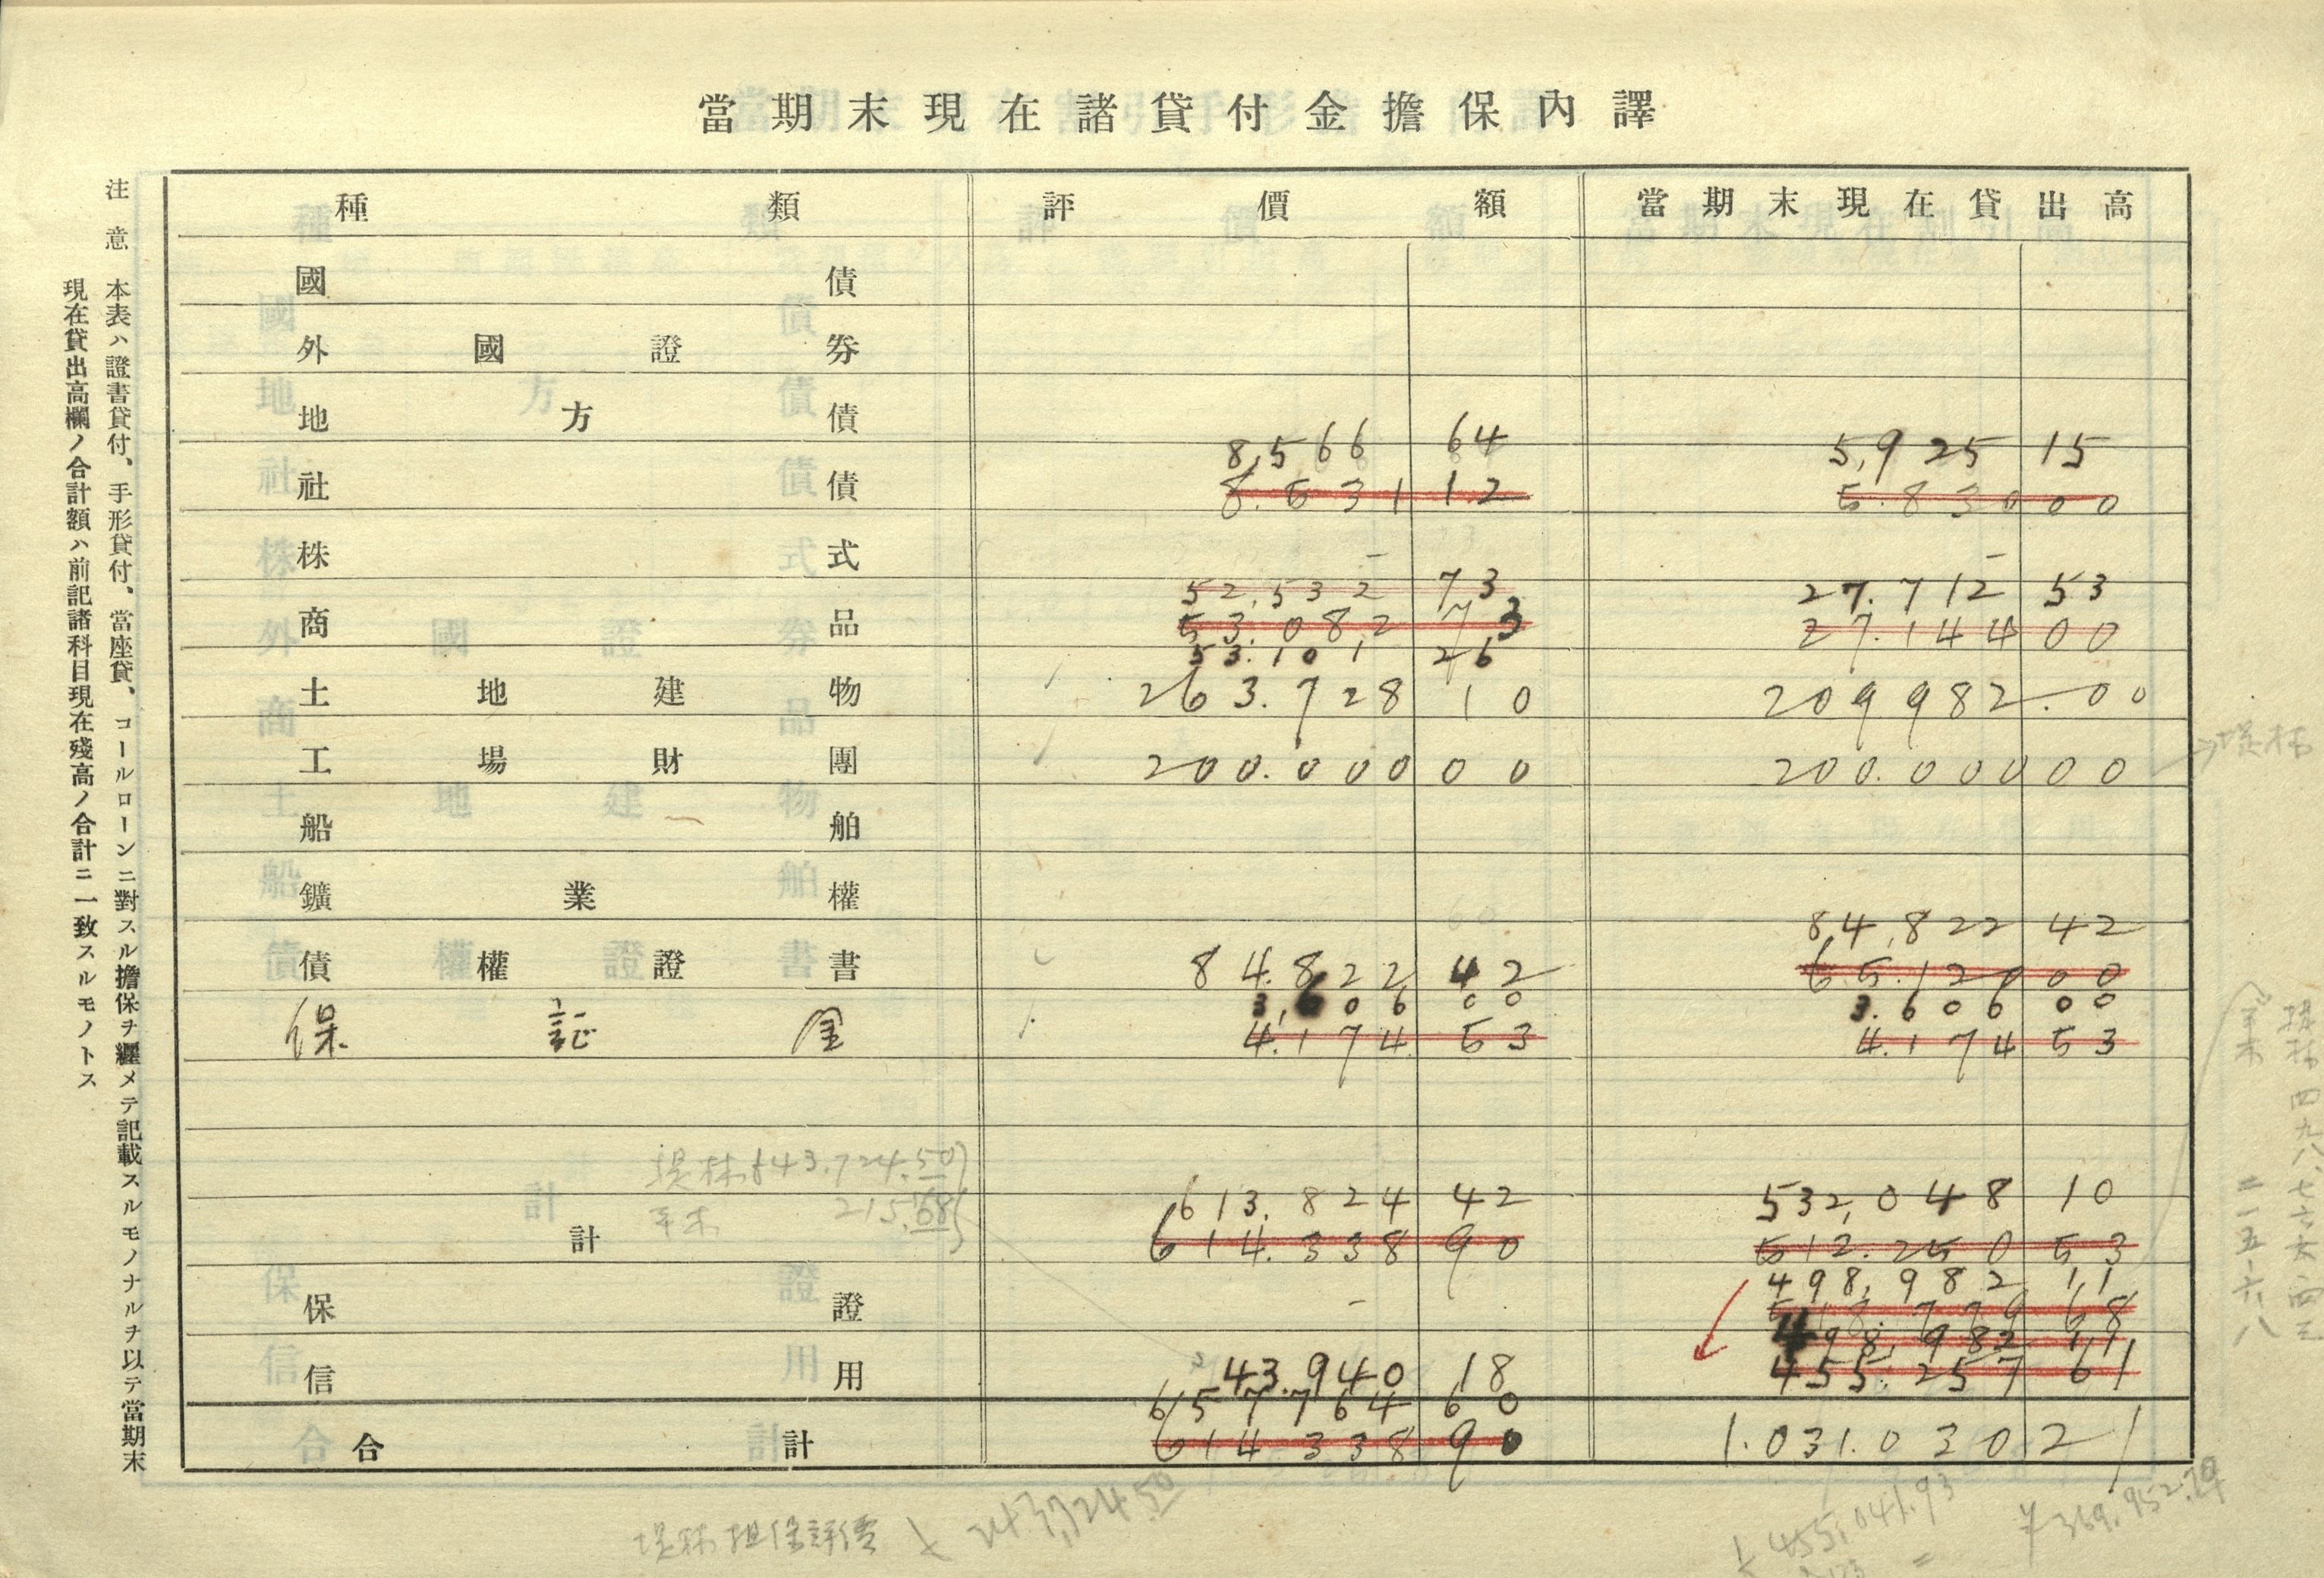 當期末現在諸貸付金擔保內譯
種類 評價額 當期末現在貸出高
國債
外國證券
地方債
8,566 64 5,925 15
社債 8.531 12 5.830 00
株式 - -
52,532 73 27.712 53
商品 53.082 73 27.144 00
53.101 26
土地建物 263.728 10 209982.00
工場財團 200.000 00 200.000 00
船舶
鑛業權
84,822 42
債權證書 84.822 42 65.120 00
3,606 00 3.606 00
保証金 4.174 53 4.174 53
613.824 42 532,048 10
計 614.338 90 512.250 53
498,982 11
保證 - 518.779 68
498,982 11
信用 43.940 18 455.257 61
657764 60
合計 614 338 90 1.031.030 21
注意 本表ハ證書貸付、手形貸付、當座貸、コールローンニ對スル擔保ヲ纒メテ記載スルモノナルヲ以テ當期末
現在貸出高欄ノ合計額ハ前記諸科目現在殘高ノ合計ニ一致スルモノトス
215.68
455,041.93
¥369.952.79